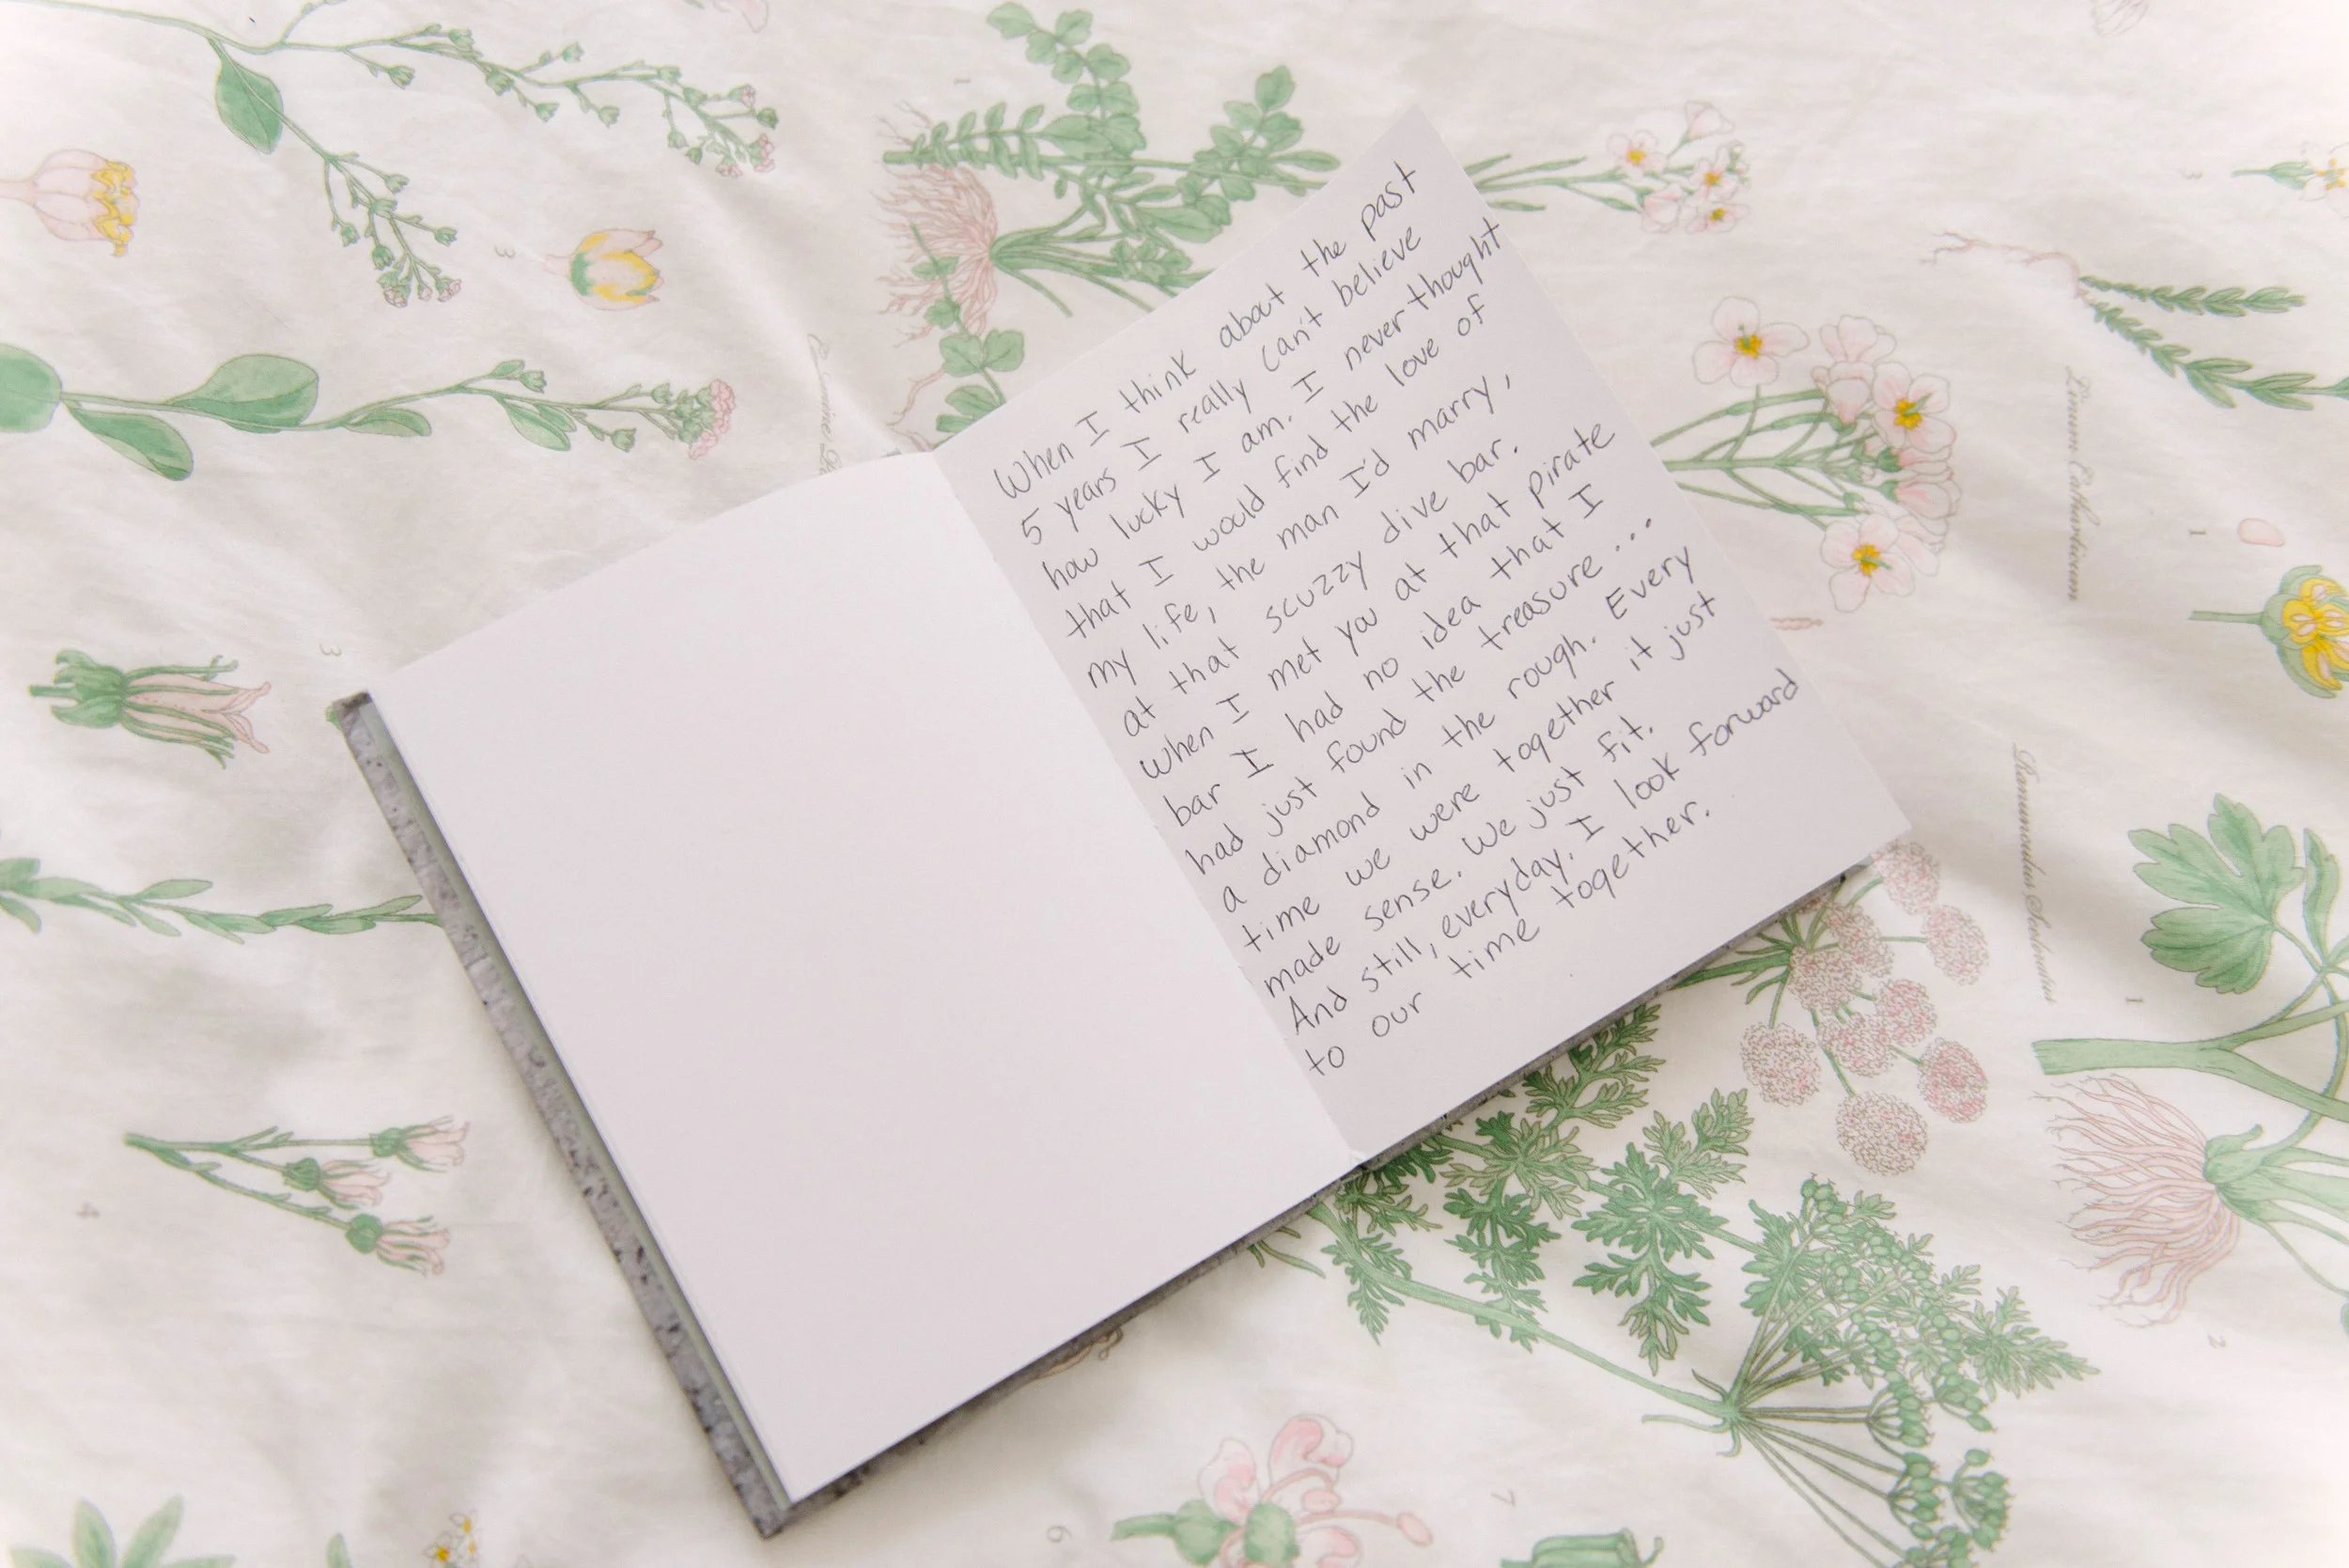 When I think about the past
5 years I really can't believe
how lucky I am. I never thought
that I would find the love of
my life, the man I'd marry,
at that scuzzy dive bar.
When I met you at that pirate
bar I had no idea that I
had just found the treasure...
a diamond in the rough. Every
time we were together it just
made sense. We just fit.
And still, everyday, I look forward
to our time together.
Linum Catharticum
3
3
3
4
1
1
1
2
6
7